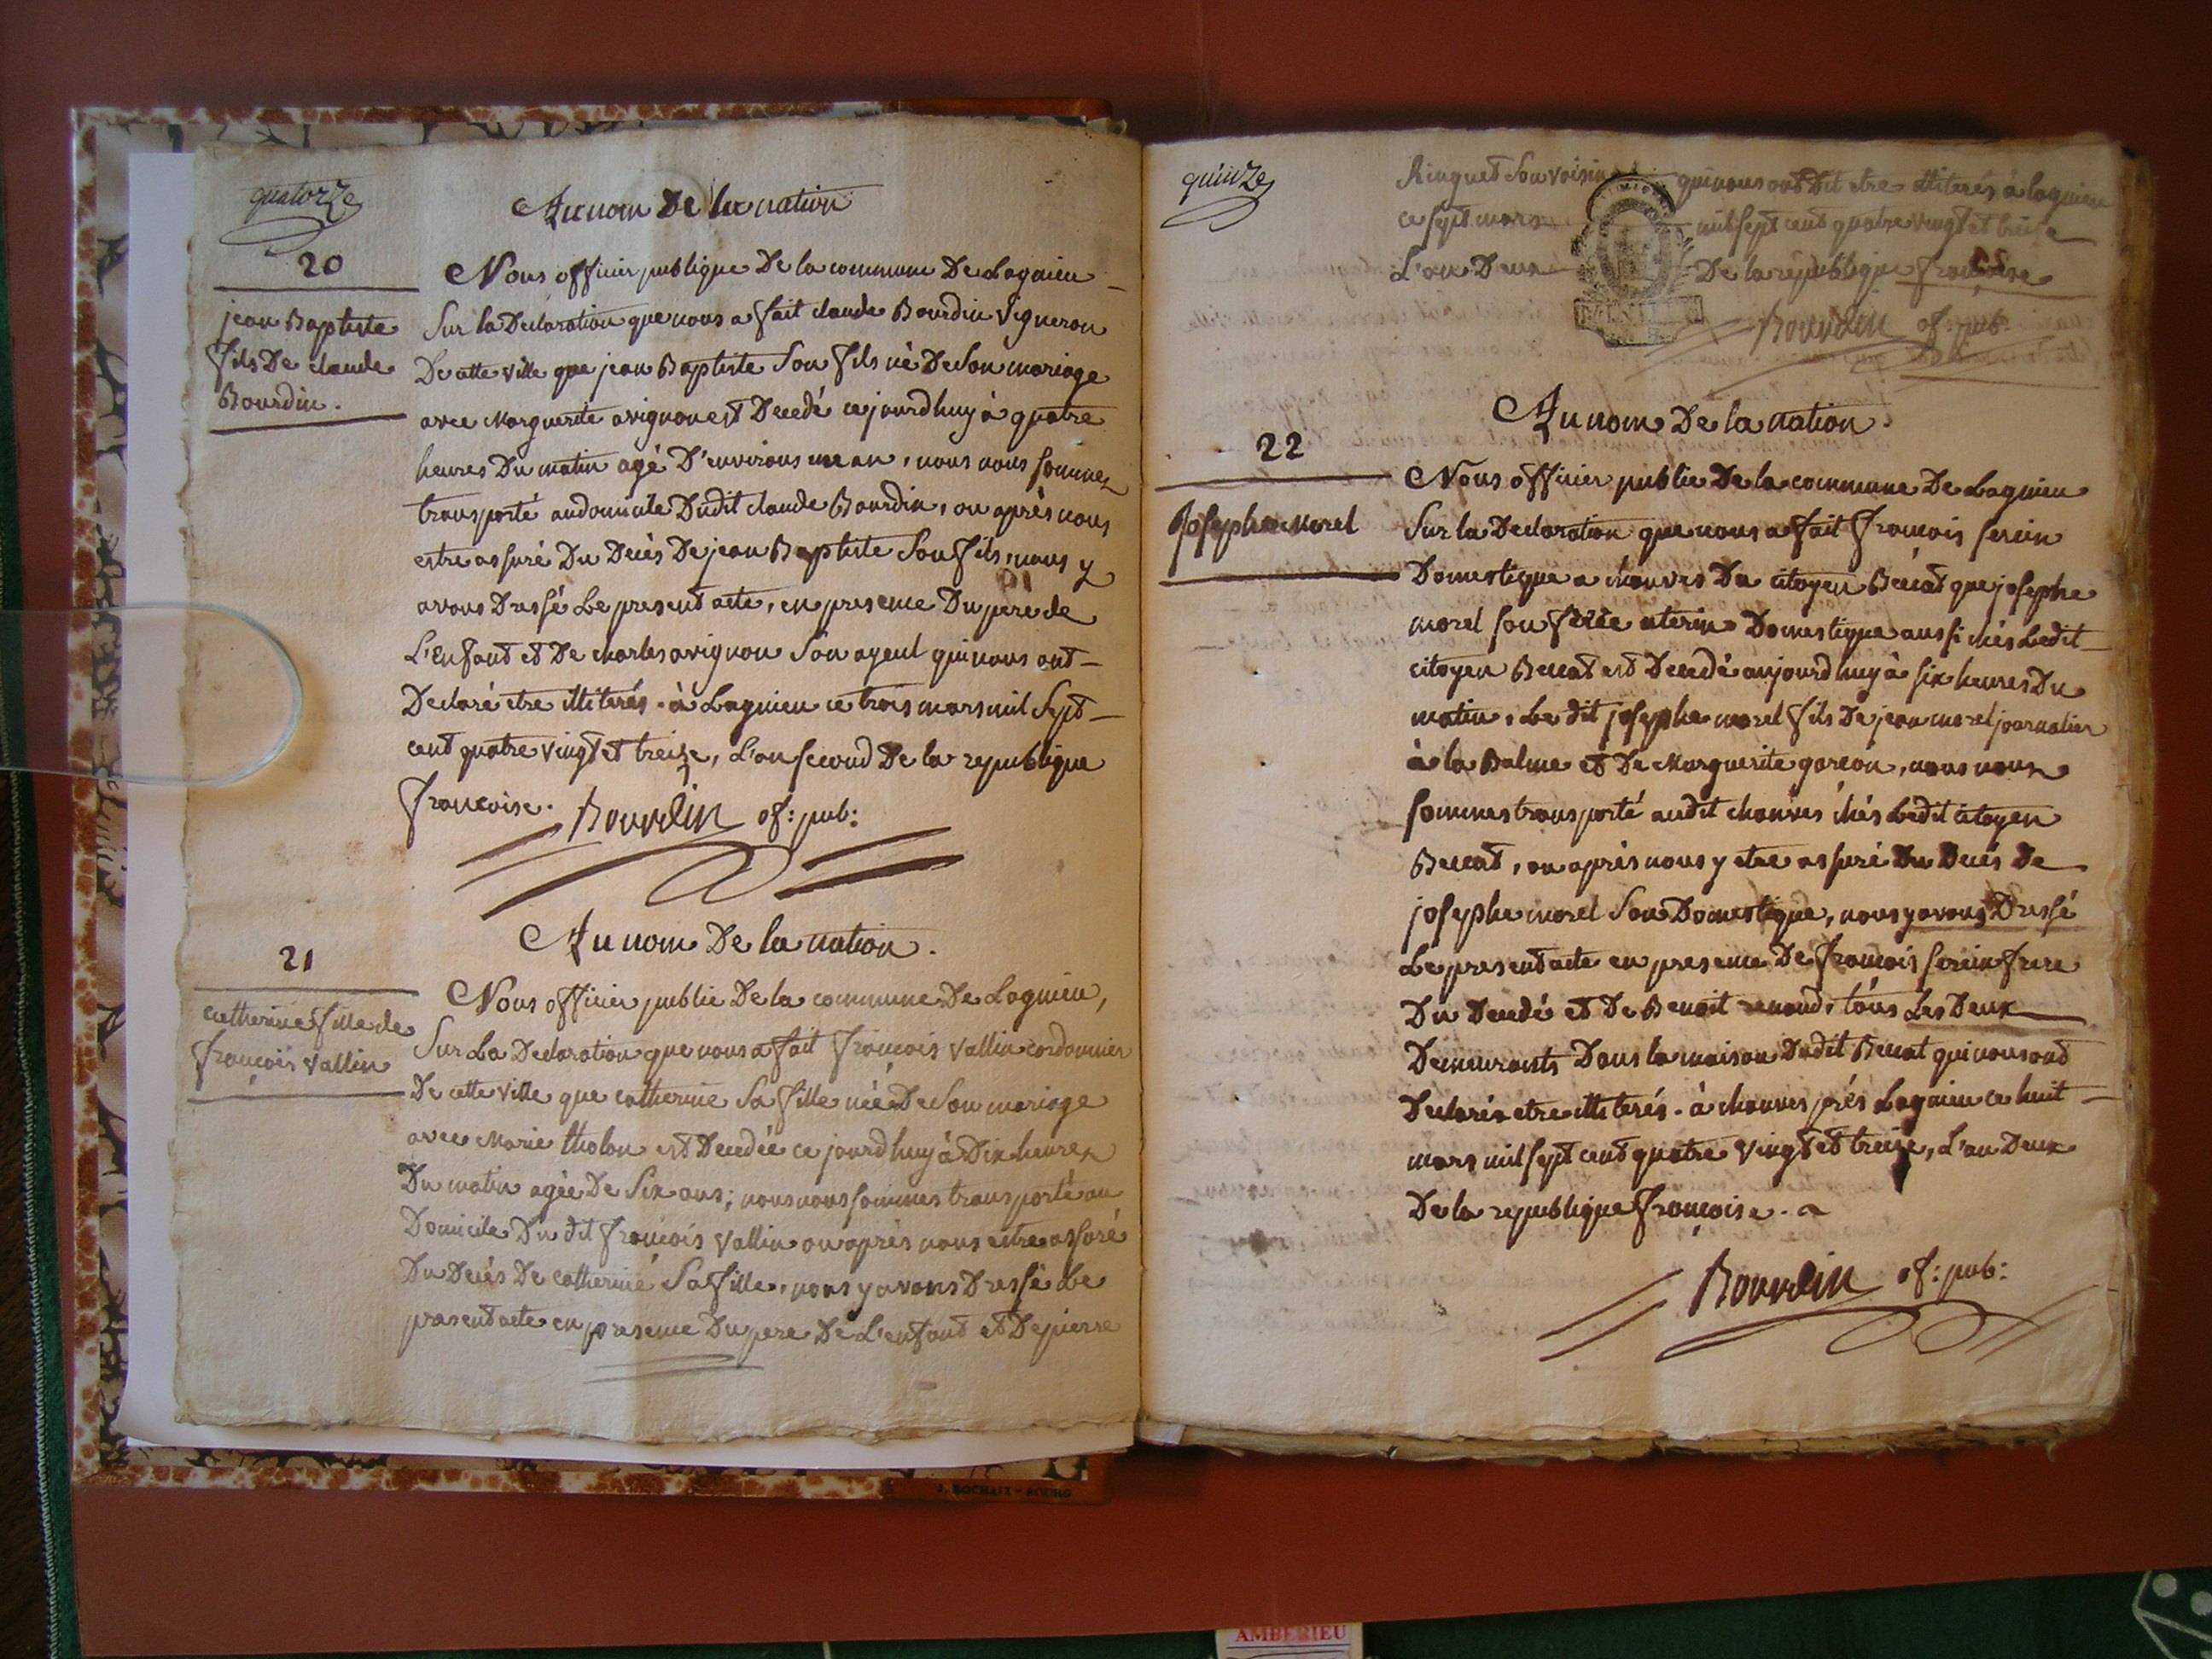 quatorze
Au nom De la nation
20
Nous officier publique De la commune De Lagnieu
jean Baptiste
fils De claude
Bourdin.
Sur la Declaration que nous a fait claude Bourdin Vigneron
De cette ville que jean Baptiste Son fils né De Son mariage
avec Marguerite avignon est Decedé ce jourdhuy à quatre
heures Du matin agé D'environs une an, nous nous sommes
transporté au domicile Dudit claude Bourdin, ou après nous
estre assuré Du Decès De jean Baptiste Son fils, nous y
avons Dressé Le present acte, en presence Du pere de
L'enfant et De charles avignon Son ayeul qui nous ont
Declaré etre illiterés. à Lagnieu ce trois mars mil Sept
cent quatre vingt et treize, L'an second De la republique
francoise. Bourdin of: pub:
Au nom De la nation.
21
Nous officier public De la commune De Lagnieu,
catherine fille de
francois vallin
Sur La Declaration que nous a fait francois vallin cordonnier
De cette ville que catherine Sa fille née De Son mariage
avec Marie tholon est Decedée ce jourdhuy à Dix heures
Du matin agée De Six ans; nous nous sommes transporté au
Domicile Du dit francois vallin ou après nous estre assuré
Du Decés De catherine Sa fille, nous y avons Dressé Le
present acte en presence Du pere De L'enfant et De pierre
quinze
Ringuet Son voisin qui nous ont Dit etre illiterés à lagnieu
ce sept mars mil sept cent quatre vingt et treize
L'an Deux De la république francoise
Bourdin of: pub:
Au nom De la nation.
22
Nous officier public De la commune De Lagnieu
Josephe Morel
Sur la Declaration que nous a fait francois serein
Domestique a chanves Du citoyen Beccat que josephe
morel son frère uterin Domestique aussi chés Ledit
citoyen Beccat est Decedé aujourdhuy à six heures Du
matin, Le dit josephe morel fils De jean morel journalier
à la Balme et De Marguerite garcon, nous nous
sommes transporté audit chanves chés Ledit citoyen
Beccat, ou après nous y etre assuré Du Decés De
josephe morel Son Domestique, nous y avons Dressé
Le present acte en presence De francois serein frere
Du Decedé et De Benoit renaud, tous Les Deux
Demeurants Dans la maison Dudit Beccat qui nous ont
Declarés etre illiterés. à chanves près Lagnieu ce huit
mars mil sept cent quatre vingt et treize, L'an Deux
De la republique francoise.
Bourdin of: pub:
J. ROCHAIX - BOURG
AMBERIEU